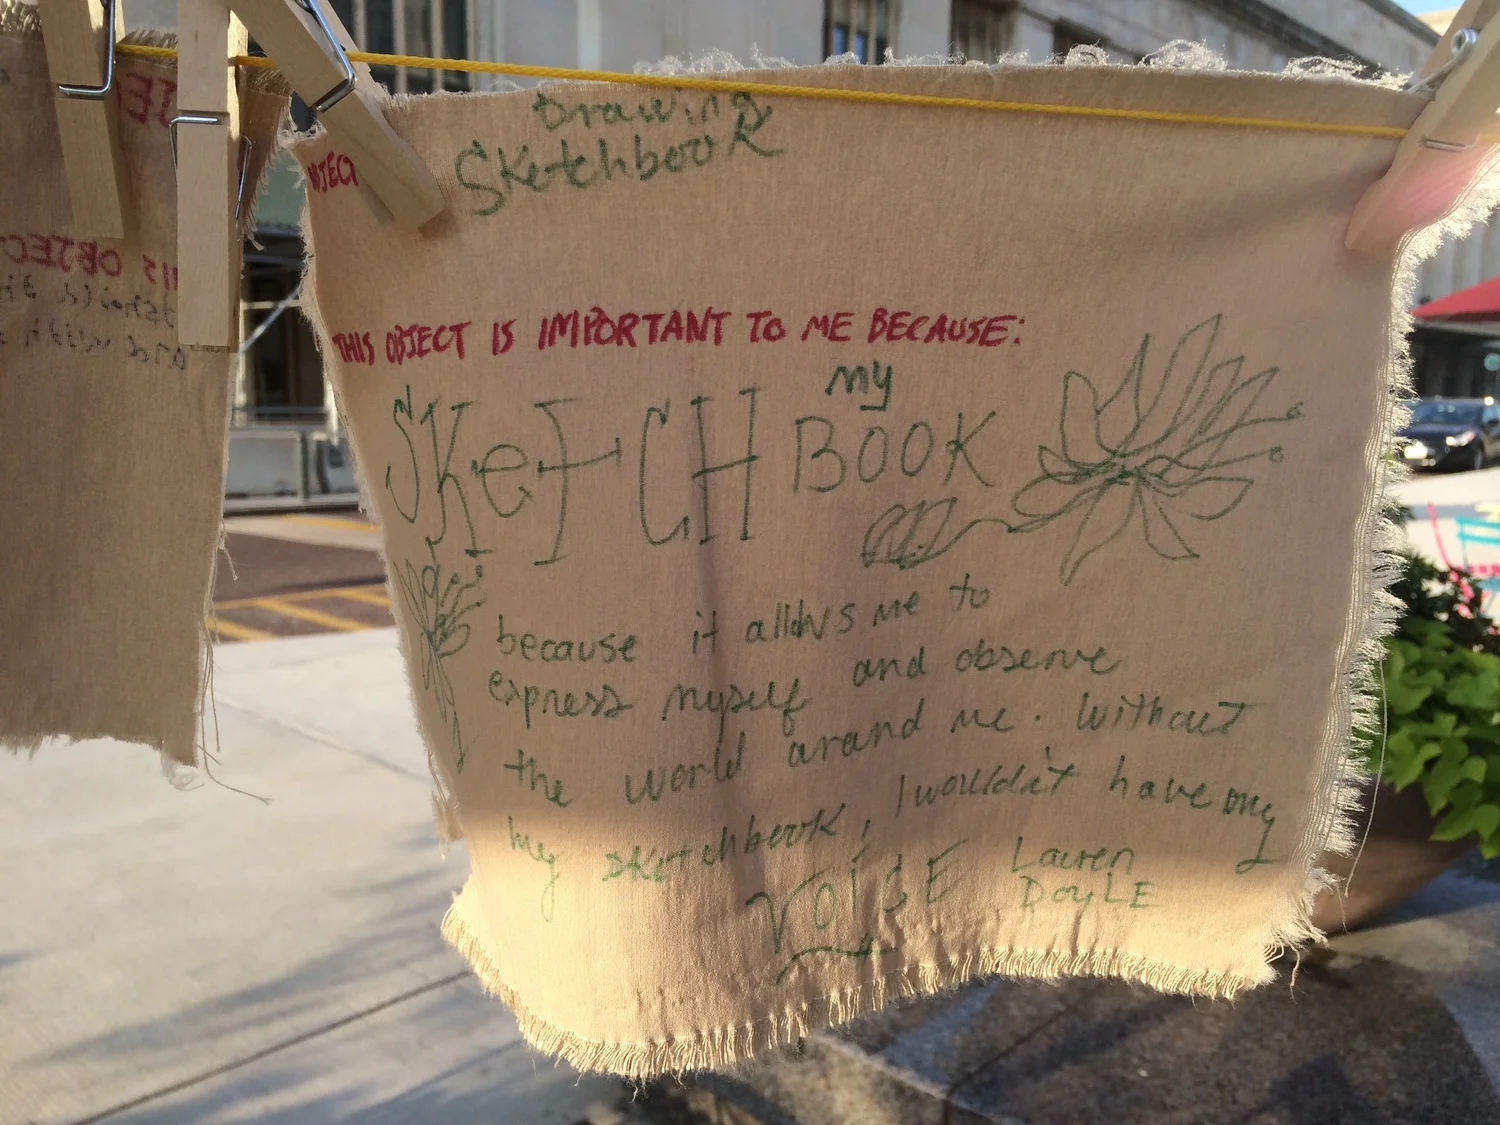 Drawing
Sketchbook
THIS OBJECT IS IMPORTANT TO ME BECAUSE:
my
SKeTCH BOOK
because it allows me to
express myself and observe
the world around me. Without
my sketchbook, I wouldn't have my
VOICE
Lauren
DOYLE